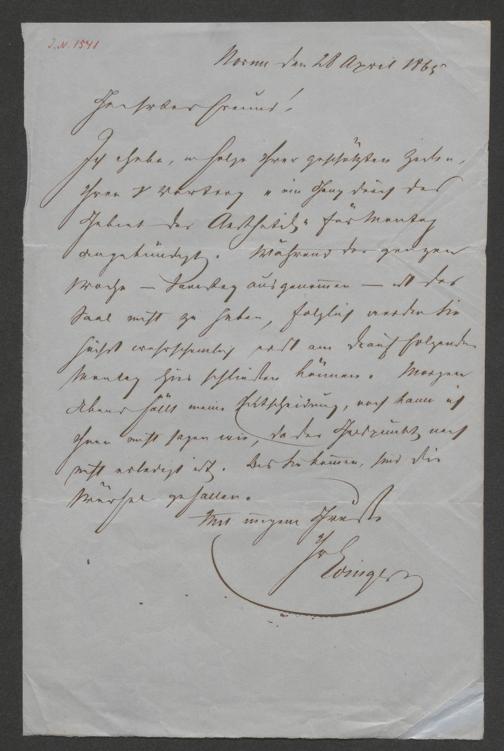 J. N. 1541
Worms den 28 April 1865
Hochverehrter Freund!
Ich habe, in Folge Ihrer geschätzten Zeilen,
Ihren Vortrag „ein Gang durch das
Gebiet der Aesthetik" für Montag
angekündigt. Während der ganzen
Woche – Samstag ausgenommen – ist der
Saal nicht zu haben, folglich werden Sie
höchst wahrscheinlich erst am darauf folgenden
Montag hier schließen können. Morgen
Abend fällt meine Entscheidung, noch kann ich
Ihnen nicht sagen wie, da der Geldpunkt noch
nicht erledigt ist. Bis Sie kommen, sind die
Würfel gefallen.
Mit innigem Gruße
Ihr
Edinger